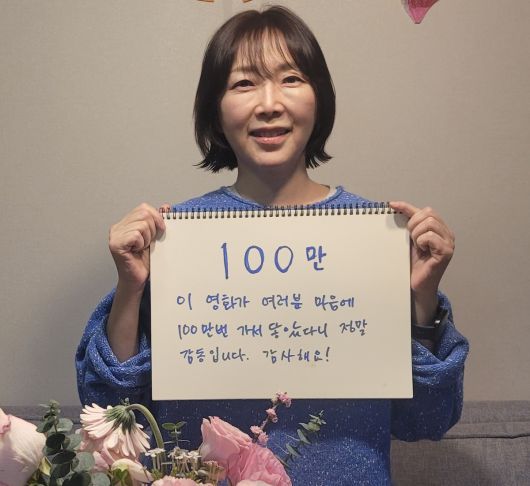 100만
이 영화가 여러분 마음에
100만번 가서 닿았다니 정말
감동입니다. 감사해요!